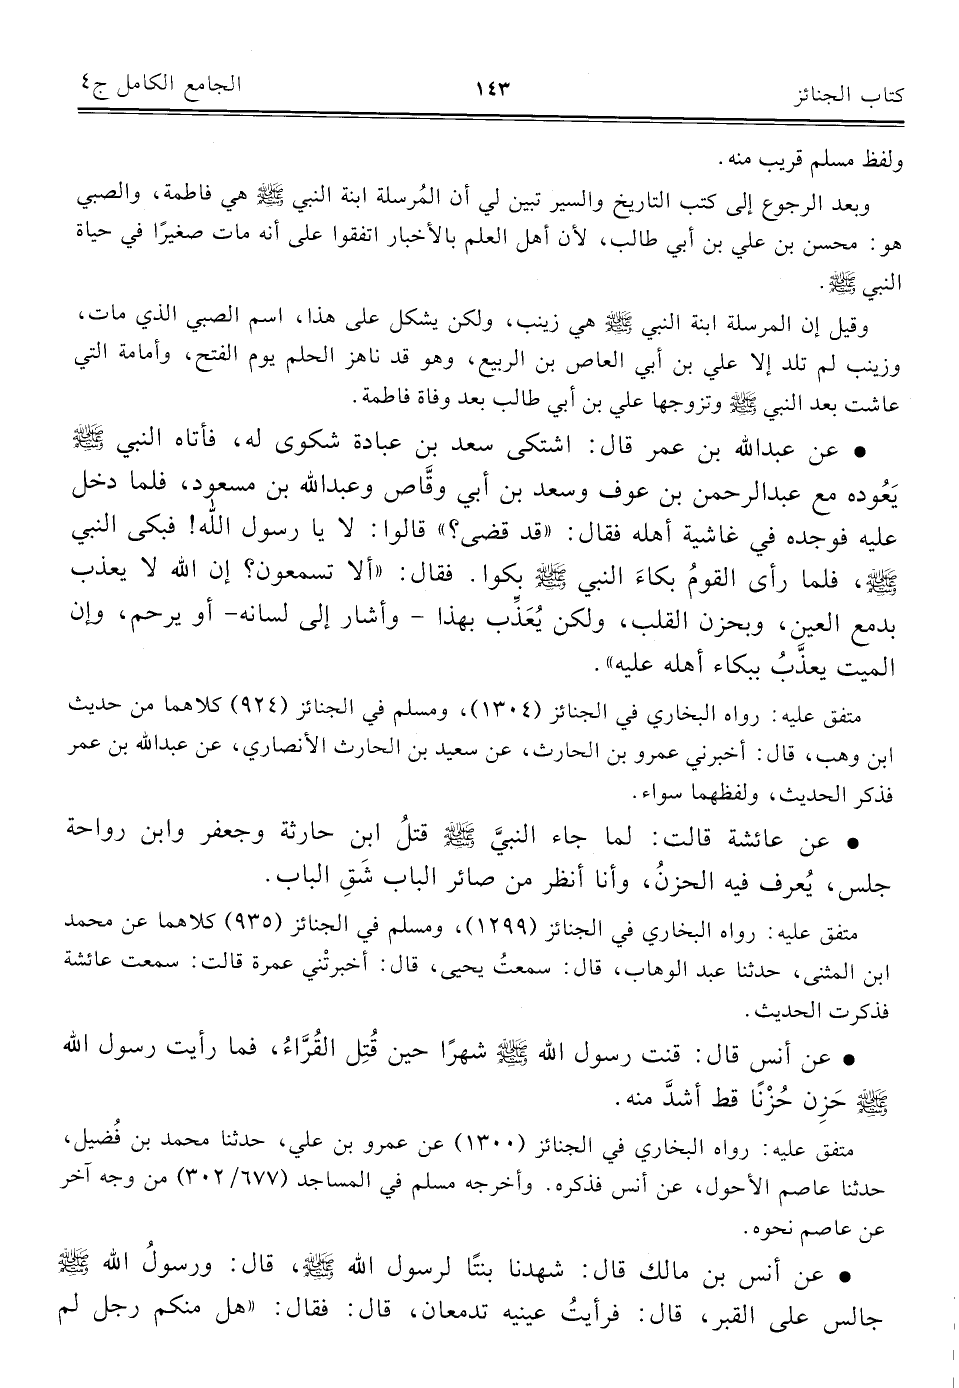 كتاب الجنائز ١٤٣ الجامع الكامل ج٤
ولفظ مسلم قريب منه.
وبعد الرجوع إلى كتب التاريخ والسير تبين لي أن المُرسلة ابنة النبي ﷺ هي فاطمة، والصبي
هو: محسن بن علي بن أبي طالب، لأن أهل العلم بالأخبار اتفقوا على أنه مات صغيرًا في حياة
النبي ﷺ.
وقيل إن المرسلة ابنة النبي ﷺ هي زينب، ولكن يشكل على هذا، اسم الصبي الذي مات،
وزينب لم تلد إلا علي بن أبي العاص بن الربيع، وهو قد ناهز الحلم يوم الفتح، وأمامة التي
عاشت بعد النبي ﷺ وتزوجها علي بن أبي طالب بعد وفاة فاطمة.
• عن عبدالله بن عمر قال: اشتكى سعد بن عبادة شكوى له، فأتاه النبي ﷺ
يَعُوده مع عبدالرحمن بن عوف وسعد بن أبي وقَّاص وعبدالله بن مسعود، فلما دخل
عليه فوجده في غاشية أهله فقال: «قد قضى؟» قالوا: لا يا رسول الله! فبكى النبي
ﷺ، فلما رأى القومُ بكاءَ النبي ﷺ بكوا. فقال: «ألا تسمعون؟ إن الله لا يعذب
بدمع العين، وبحزن القلب، ولكن يُعَذِّب بهذا - وأشار إلى لسانه- أو يرحم، وإن
الميت يعذَّبُ ببكاء أهله عليه».
متفق عليه: رواه البخاري في الجنائز (١٣٠٤)، ومسلم في الجنائز (٩٢٤) كلاهما من حديث
ابن وهب، قال: أخبرني عمرو بن الحارث، عن سعيد بن الحارث الأنصاري، عن عبدالله بن عمر
فذكر الحديث، ولفظهما سواء.
• عن عائشة قالت: لما جاء النبيَّ ﷺ قتلُ ابن حارثة وجعفر وابن رواحة
جلس، يُعرف فيه الحزنُ، وأنا أنظر من صائر الباب شَقِ الباب.
متفق عليه: رواه البخاري في الجنائز (١٢٩٩)، ومسلم في الجنائز (٩٣٥) كلاهما عن محمد
ابن المثنى، حدثنا عبد الوهاب، قال: سمعتُ يحيى، قال: أخبرتْني عمرة قالت: سمعت عائشة
فذكرت الحديث.
• عن أنس قال: قنت رسول الله ﷺ شهرًا حين قُتِل القُرَّاءُ، فما رأيت رسول الله
ﷺ حَزِن حُزْنًا قط أشدَّ منه.
متفق عليه: رواه البخاري في الجنائز (١٣٠٠) عن عمرو بن علي، حدثنا محمد بن فُضيل،
حدثنا عاصم الأحول، عن أنس فذكره. وأخرجه مسلم في المساجد (٣٠٢/٦٧٧) من وجه آخر
عن عاصم نحوه.
• عن أنس بن مالك قال: شهدنا بنتًا لرسول الله ﷺ، قال: ورسولُ الله ﷺ
جالس على القبر، قال: فرأيتُ عينيه تدمعان، قال: فقال: «هل منكم رجل لم